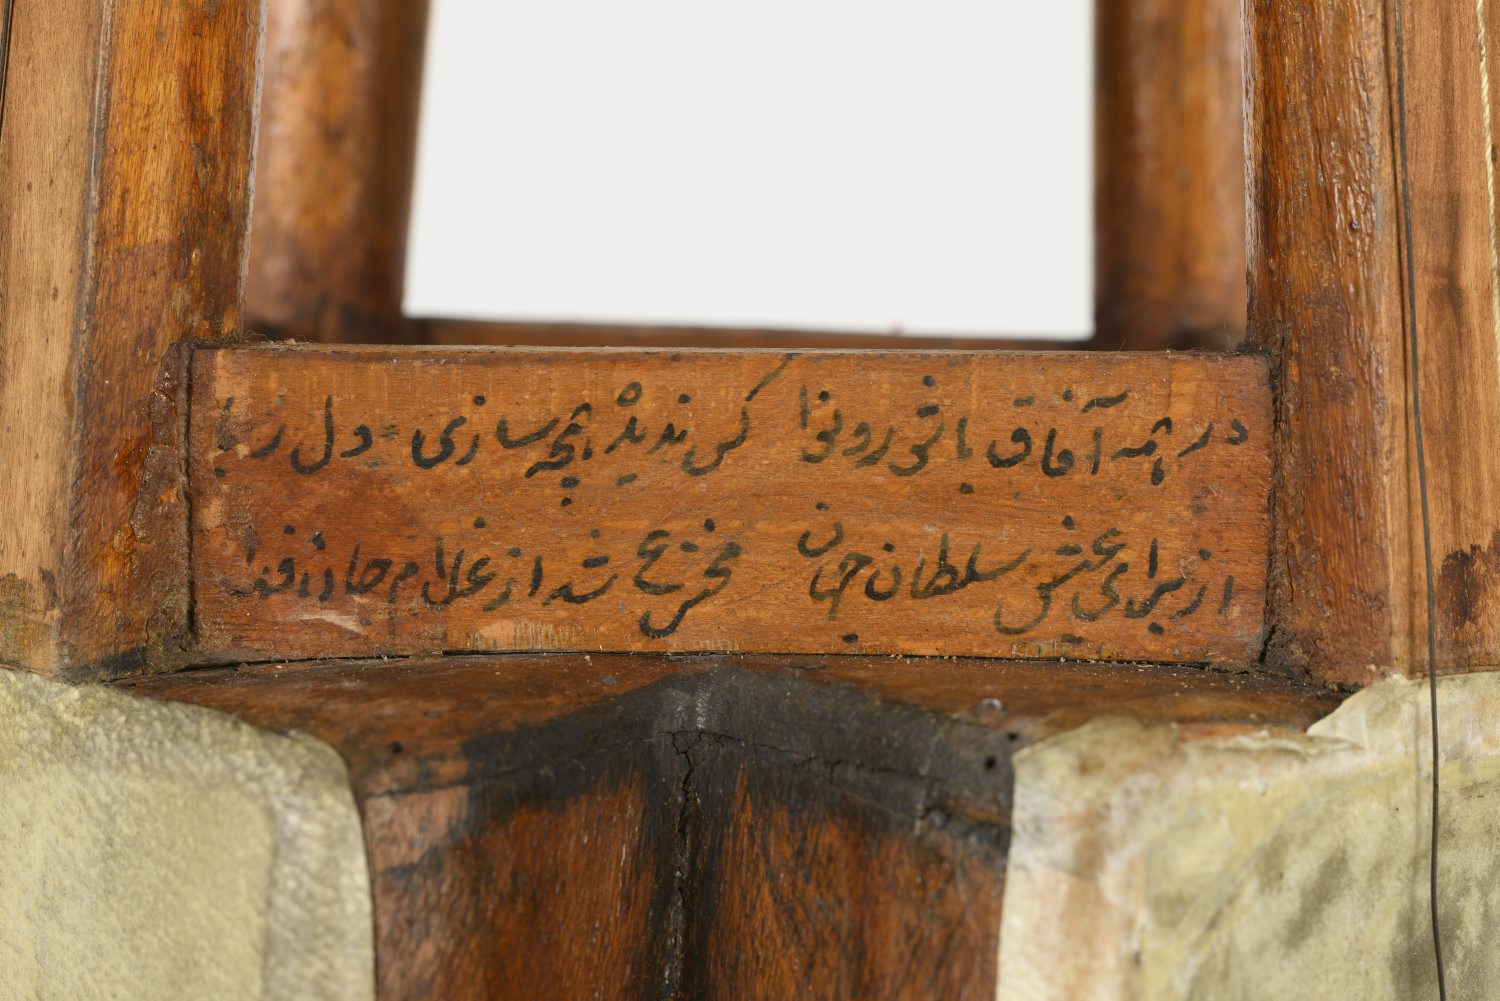 در همه آفاق با شور و نوا کس ندیده همچه سازی دل ربا
از برای عیش سلطان جهان مخترع شد از غلام جان فدا